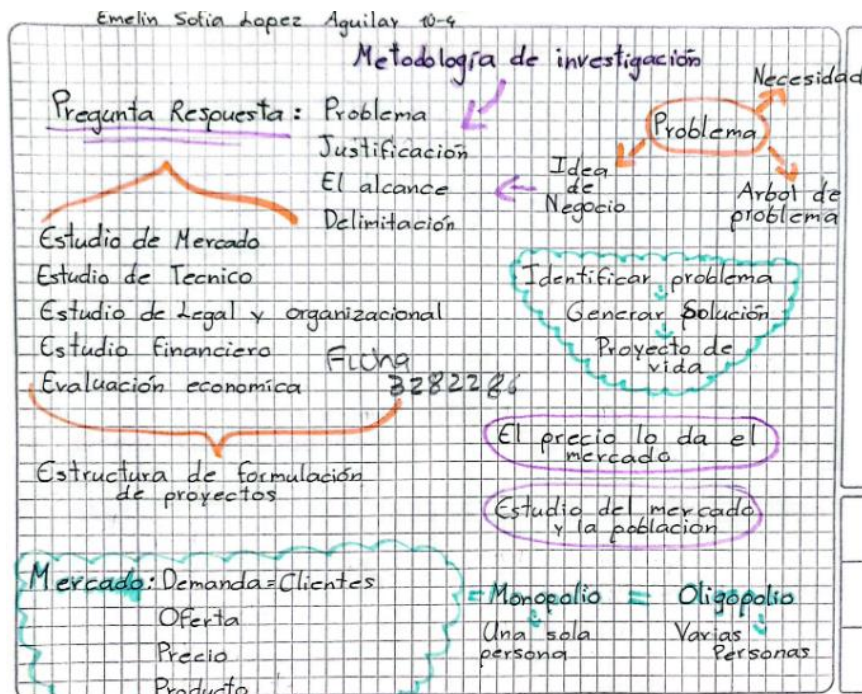 Emelin Sofia Lopez Aguilar 10-4
Metodología de investigación
Pregunta Respuesta: Problema
Justificación
El alcance
Delimitación
Necesidad
Problema
Idea
de
Negocio
Arbol de
problema
Estudio de Mercado
Estudio de Tecnico
Estudio de Legal y organizacional
Estudio financiero
Evaluación economíca
Ficha
3282286
Estructura de formulación
de proyectos
Identificar problema
Generar Solución
Proyecto de
vida
El precio lo da el
mercado
Estudio del mercado
y la población
Mercado: Demanda=Clientes
Oferta
Precio
Producto
= Monopolio = Oligopolio
Una sola
persona
Varias
Personas